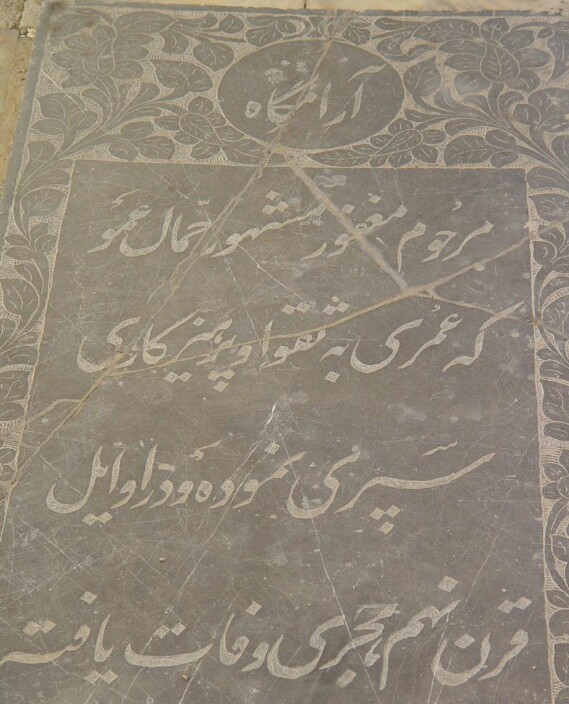 آرامگاه
مرحوم مغفور مشهور حمال عمو
که عمری به تقوا و پرهیزکاری
سپری نموده و در اوایل
قرن نهم هجری وفات یافته